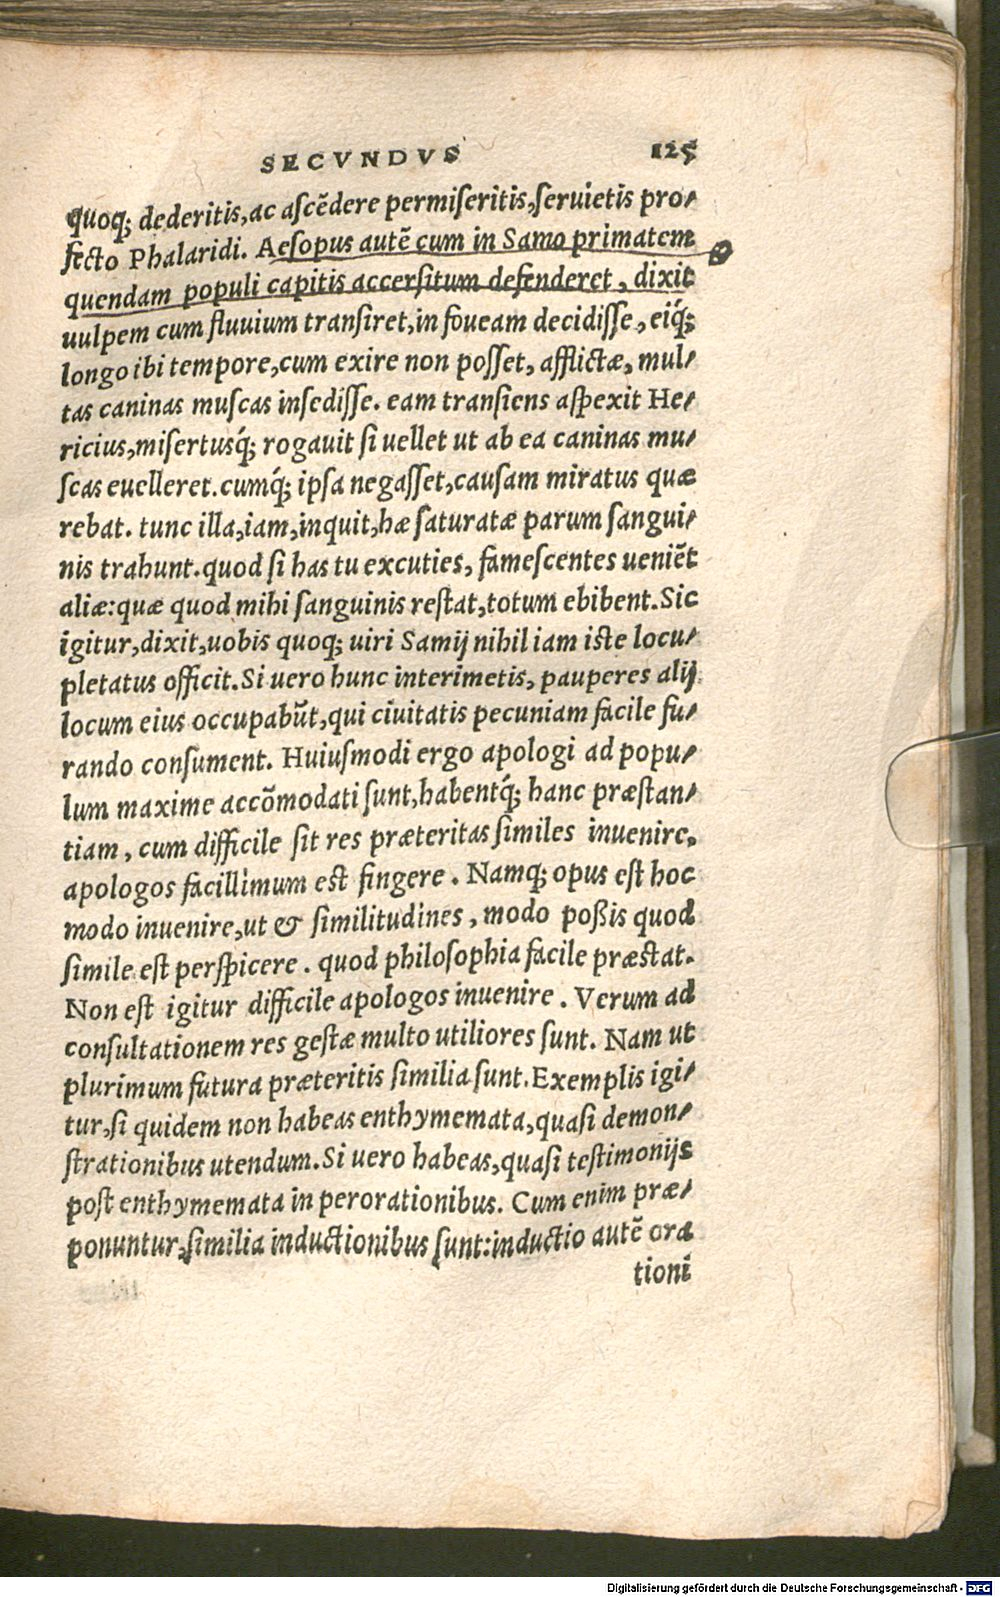 SECVNDVS 125
quoq; dederitis, ac ascēdere permiseritis, seruietis pro/
fecto Phalaridi. Aesopus autē cum in Samo primatem
quendam populi capitis accersitum defenderet, dixit
uulpem cum fluuium transiret, in foueam decidisse, eiq́;
longo ibi tempore, cum exire non posset, afflictæ, mul/
tas caninas muscas insedisse. eam transiens aspexit He/
ricius, misertusq́; rogauit si uellet ut ab ea caninas mu/
scas euelleret. cumq́; ipsa negasset, causam miratus quæ
rebat. tunc illa, iam, inquit, hæ saturatæ parum sangui/
nis trahunt. quod si has tu excuties, famescentes ueniēt
aliæ: quæ quod mihi sanguinis restat, totum ebibent. Sic
igitur, dixit, uobis quoq; uiri Samij nihil iam iste locu/
pletatus officit. Si uero hunc interimetis, pauperes alij
locum eius occupabūt, qui ciuitatis pecuniam facile fu/
rando consument. Huiusmodi ergo apologi ad popu/
lum maxime accōmodati sunt, habentq́; hanc præstan/
tiam, cum difficile sit res præteritas similes inuenire,
apologos facillimum est fingere. Namq; opus est hoc
modo inuenire, ut & similitudines, modo poßis quod
simile est perspicere. quod philosophia facile præstat.
Non est igitur difficile apologos inuenire. Verum ad
consultationem res gestæ multo utiliores sunt. Nam ut
plurimum futura præteritis similia sunt. Exemplis igi/
tur, si quidem non habeas enthymemata, quasi demon/
strationibus utendum. Si uero habeas, quasi testimonijs
post enthymemata in perorationibus. Cum enim præ/
ponuntur, similia inductionibus sunt: inductio autē ora
tioni
Digitalisierung gefördert durch die Deutsche Forschungsgemeinschaft - DFG